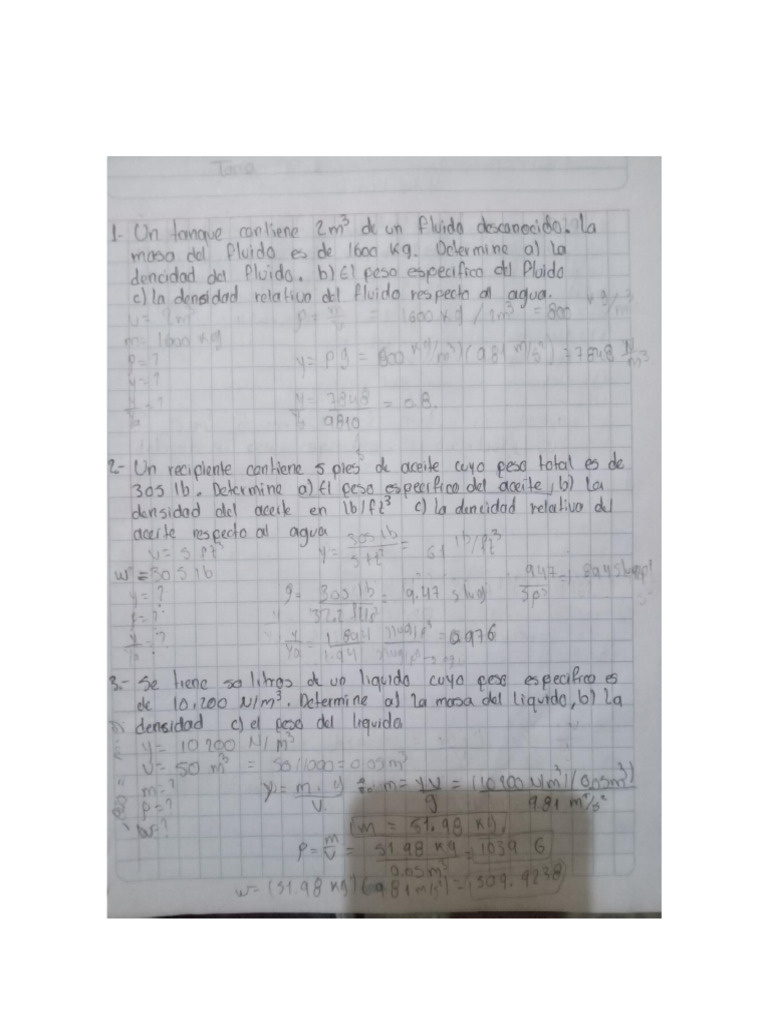 Tarea
1- Un tanque contiene 2m³ de un fluido desconocido. la
masa del fluido es de 1600 Kg. Determine a) la
dencidad del fluido. b) El peso especifico del fluido
c) la densidad relativa del fluido respecto al agua.
v= 2m³ ρ = m/v = 1600 kg / 2m³ = 800 kg/m³
m= 1600 kg
ρ= ?
γ= ? γ= ρg = 800 kg/m³)(9.81 m/s²) = 7848 N/m³
γ/γa = ? γ/γa = 7848/9810 = 0.8.
2- Un recipiente contiene 5 pies³ de aceite cuyo peso total es de
305 lb. Determine a) El peso especifico del aceite, b) la
densidad del aceite en lb/ft³ c) la dencidad relativa del
aceite respecto al agua
v= 5 ft³ γ= 305 lb / 5 ft³ = 61 lb/ft³
w = 305 lb
γ= ? 305 lb / 32.2 = 9.47 slug 9.47
ρ= ?
γ/γa = ? γ/γa = 1.894 / 1.941 = 0.976
3.- Se tiene 50 litros de un liquido cuyo peso especifico es
de 10,200 N/m³. Determine a) la masa del liquido, b) la
densidad c) el peso del liquido
γ= 10 200 N/m³
v= 50 m³ = 50/1000 = 0.05 m³
m= ? γ= m·g / v ∴ m= γv/g = (10 200 N/m³)(0.05m³) / 9.81 m/s²
ρ= ?
w= ? m = 51.98 kg
ρ= m/v = 51.98 kg / 0.05m³ = 1039 6
w= (51.98 kg)(9.81 m/s²) = 509.9238